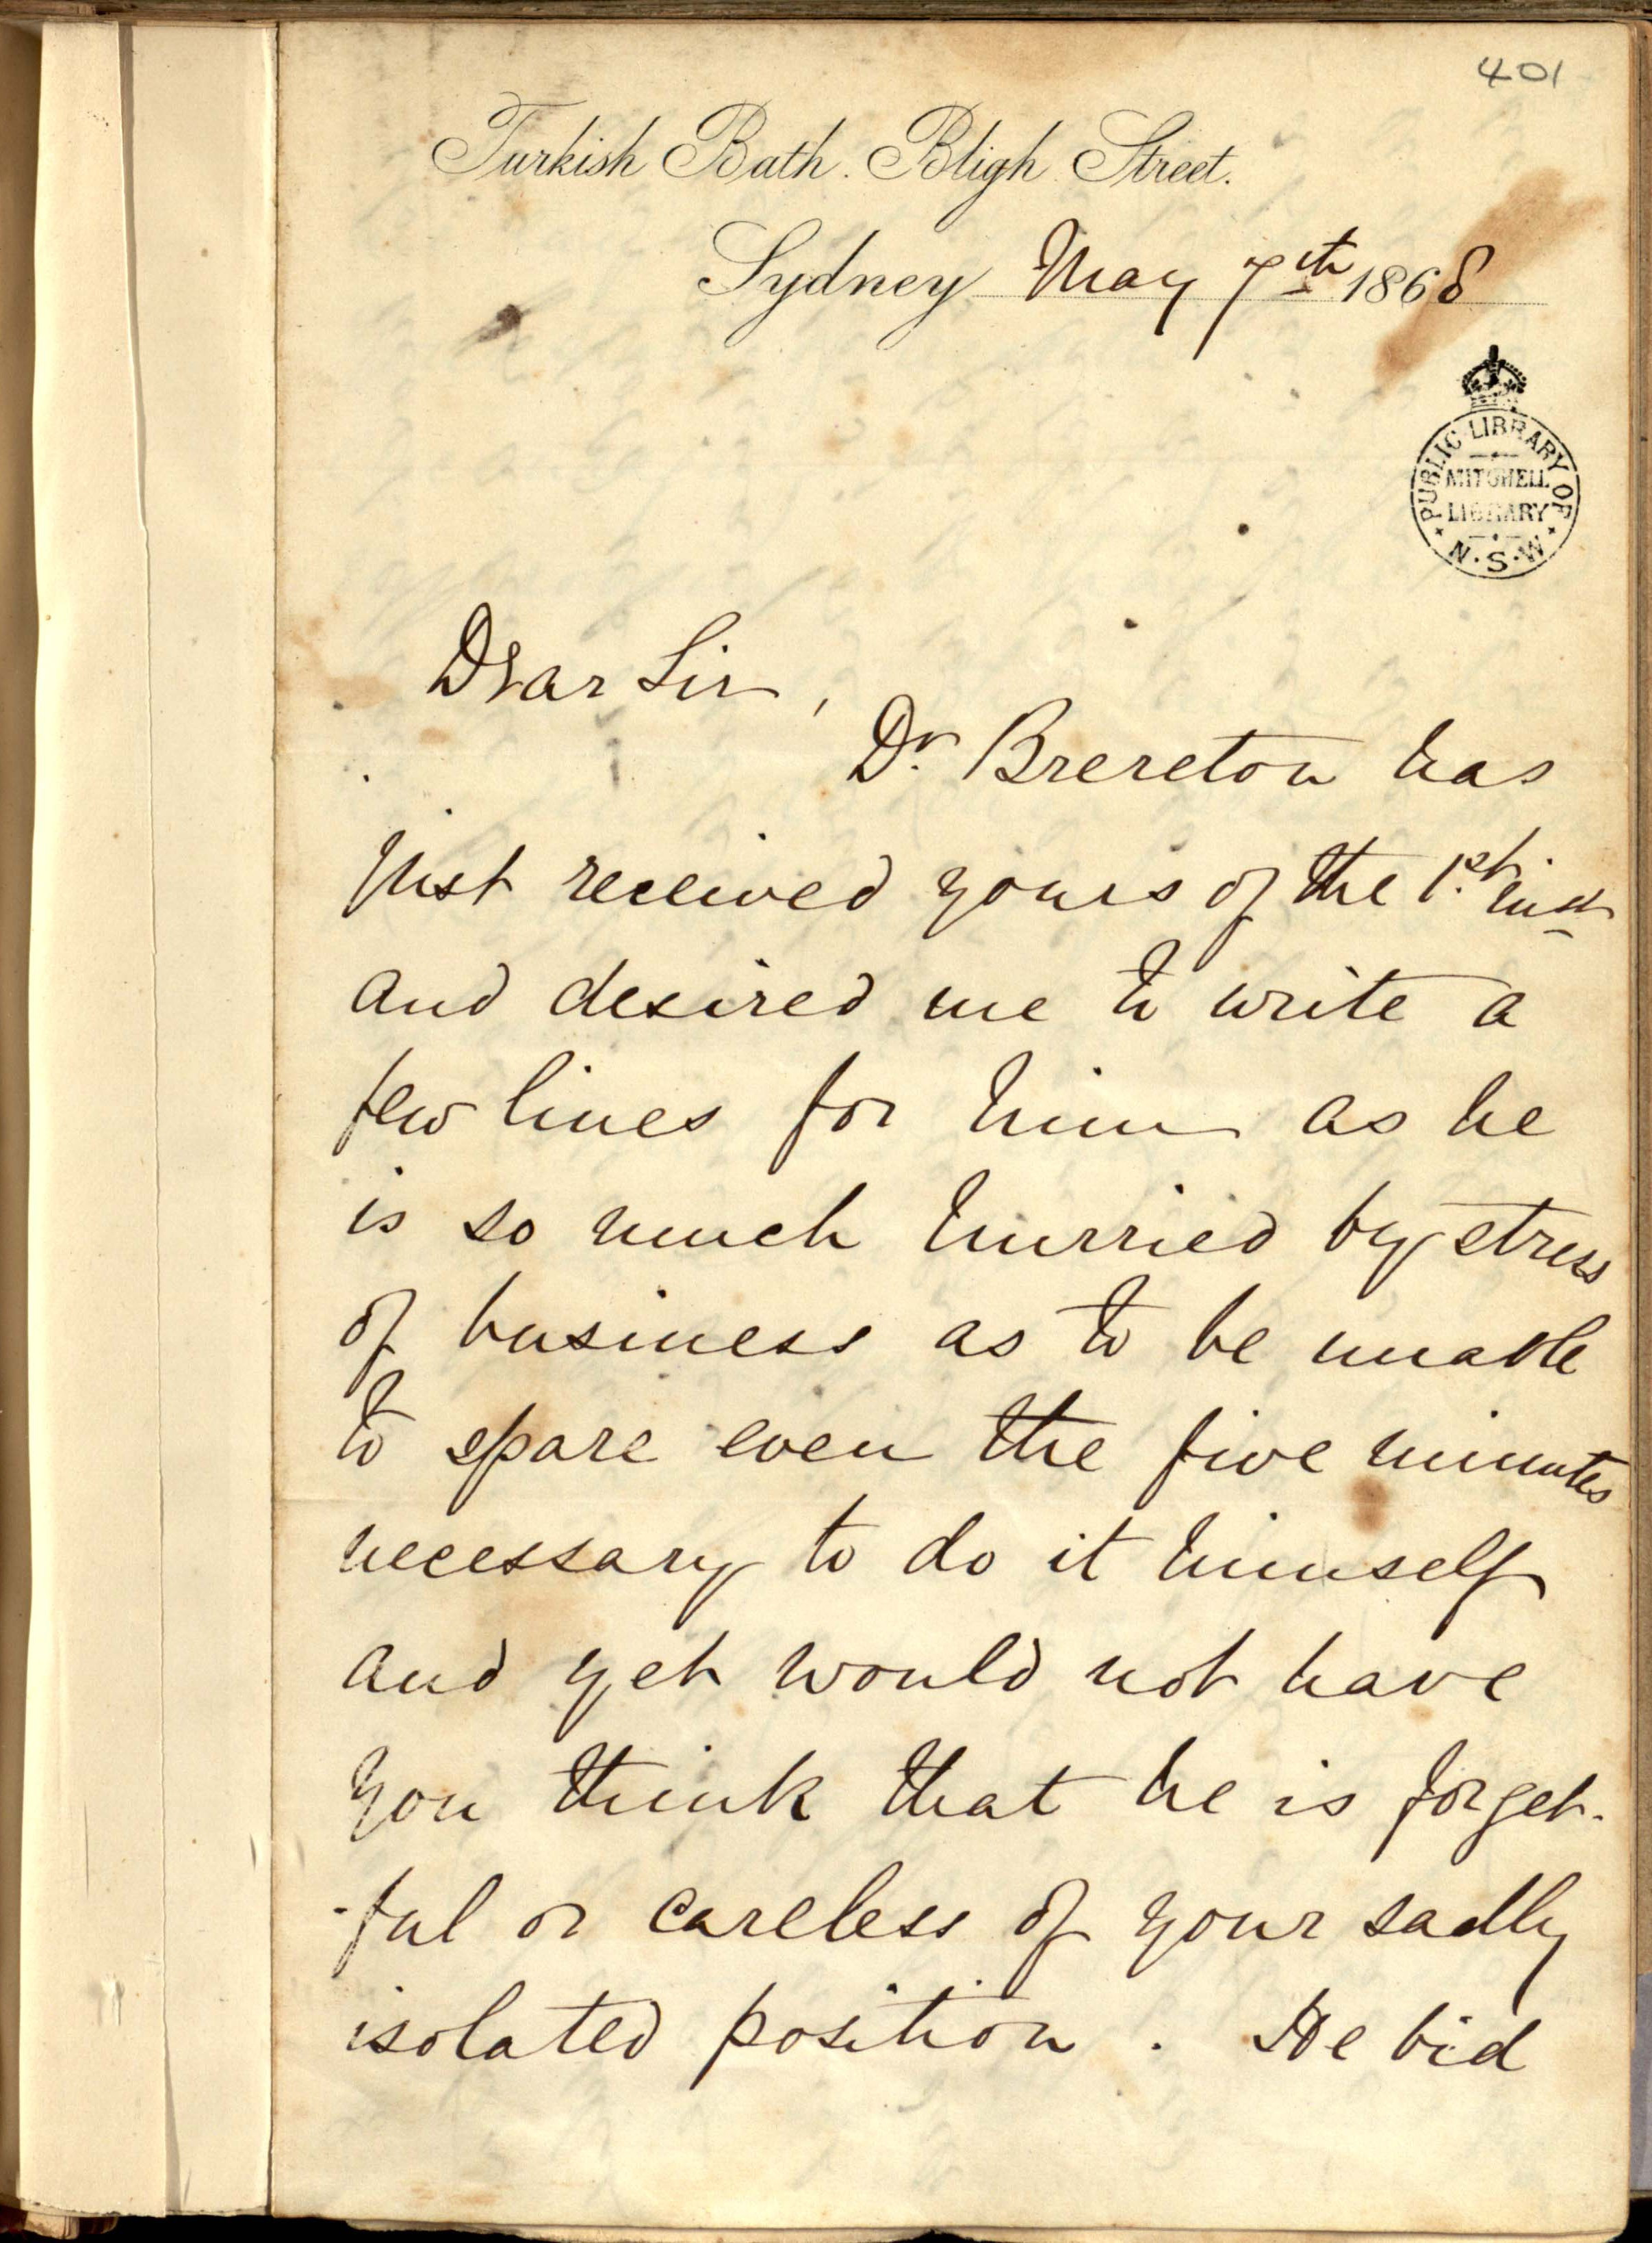 401
Turkish Bath. Bligh Street.
Sydney May 7th 1868
PUBLIC LIBRARY OF
MITCHELL
LIBRARY
N.S.W
Dear Sir,
Dr. Brereton has
just received yours of the 1st. inst
and desired me to write a
few lines for him as he
is so much hurried by stress
of business as to be unable
to spare even the five minutes
necessary to do it himself
and yet would not have
you think that he is forget-
-ful or careless of your sadly
isolated position. He bid